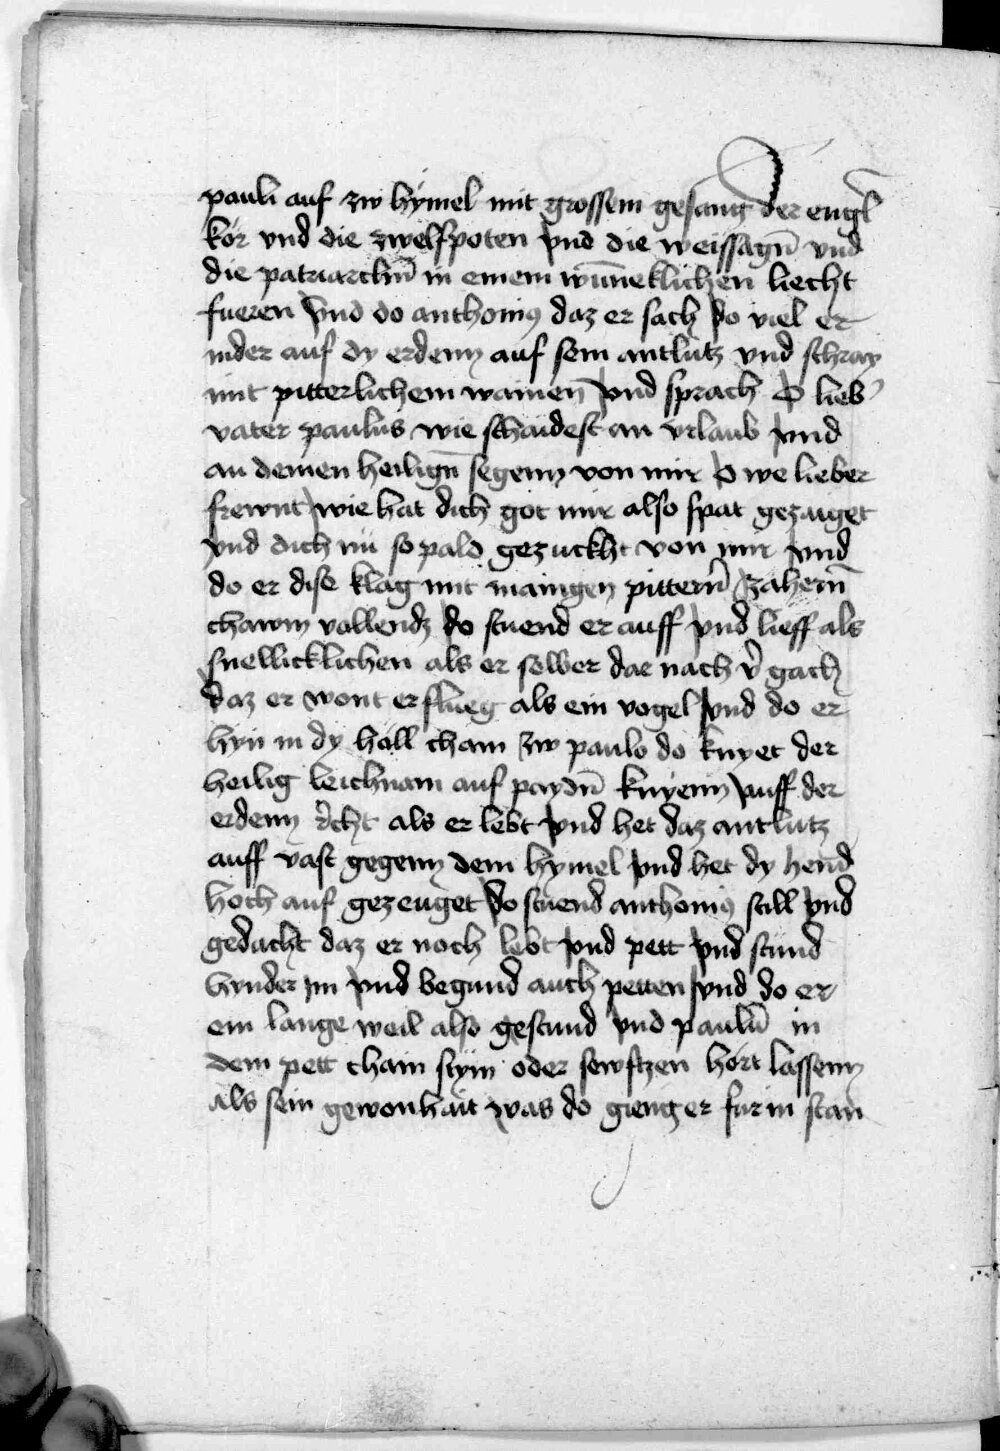 pauli auf zw hymel mit grossem gesang der engl̄
kör vnd die zwelfpoten vnd die weissagn̄ vnd
die patriarchn̄ in einem wūneklichen liecht
fueren Vnd do anthonius daz er sach do viel er
nider auf dy erdenn auf sein antlütz vnd schray
mit pitterlichem wainen vnd sprach O lieb'
vater paulus wie schaidest an vrlaub vnd
an deinen heilign̄ segenn von mir O we lieber
frewnt wie hat dich got mir also spat gezaiget
vnd dich nü so pald gezuckht von mir vnd
do er dise klag mit maingen pittern̄ zahern̄
chawm vollendz do stuend er auff vnd lieff als
snellicklichen als er selber dar nach v̄gach
daz er wont er flueg als ein vogel vnd do er
hyn in dy höll cham zw paulo do knyet der
heilig leichnam auf paydn̄ knyenn auff der
erdenn r̄cht als er lebt vnd het daz antlütz
auff vast gegenn dem hymel vnd het dy hend
hoch auf gezeuget do stuend anthonius still vnd
gedacht daz er noch lebt vnd pett vnd stund
hynder im vnd begund auch petten vnd do er
ein lange weil also gestund vnd paulū in
dem pett chain stym oder sewftzen hört lassenn
als sein gewonhait was do gieng er für in stan